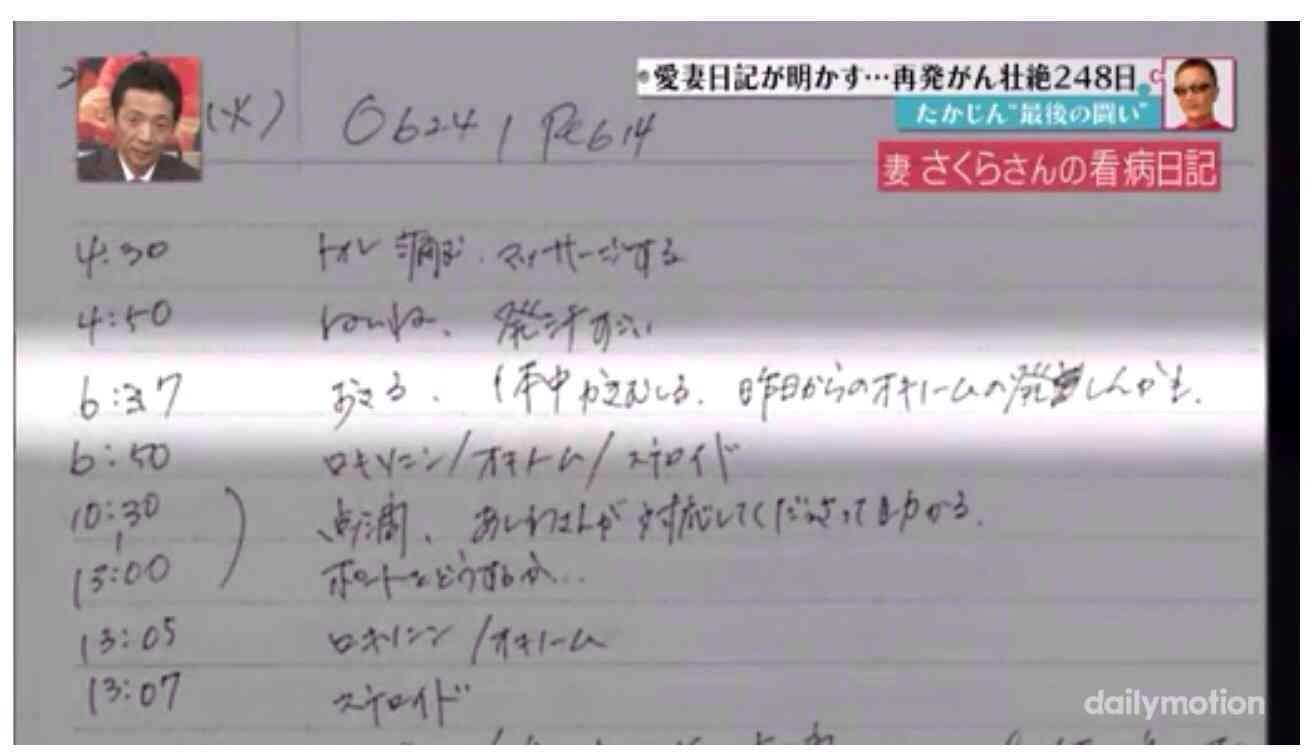 愛妻日記が明かす…再発がん壮絶248日
たかじん"最後の闘い"
妻 さくらさんの看病日記
(火) 0624 / PC614
4:30 トイレ 痛む、マッサージする
4:50 ねいね、発汗すごい
6:37 おきる、体中がきむしる、昨日からのオキノームの発しんかも、
6:50 ロキソニン/オキノーム/ステロイド
10:30 点滴、さんが対応してくださって助かる。
13:00 ポートをどうするか…
13:05 ロキソニン/オキノーム
13:07 ステロイド
dailymotion